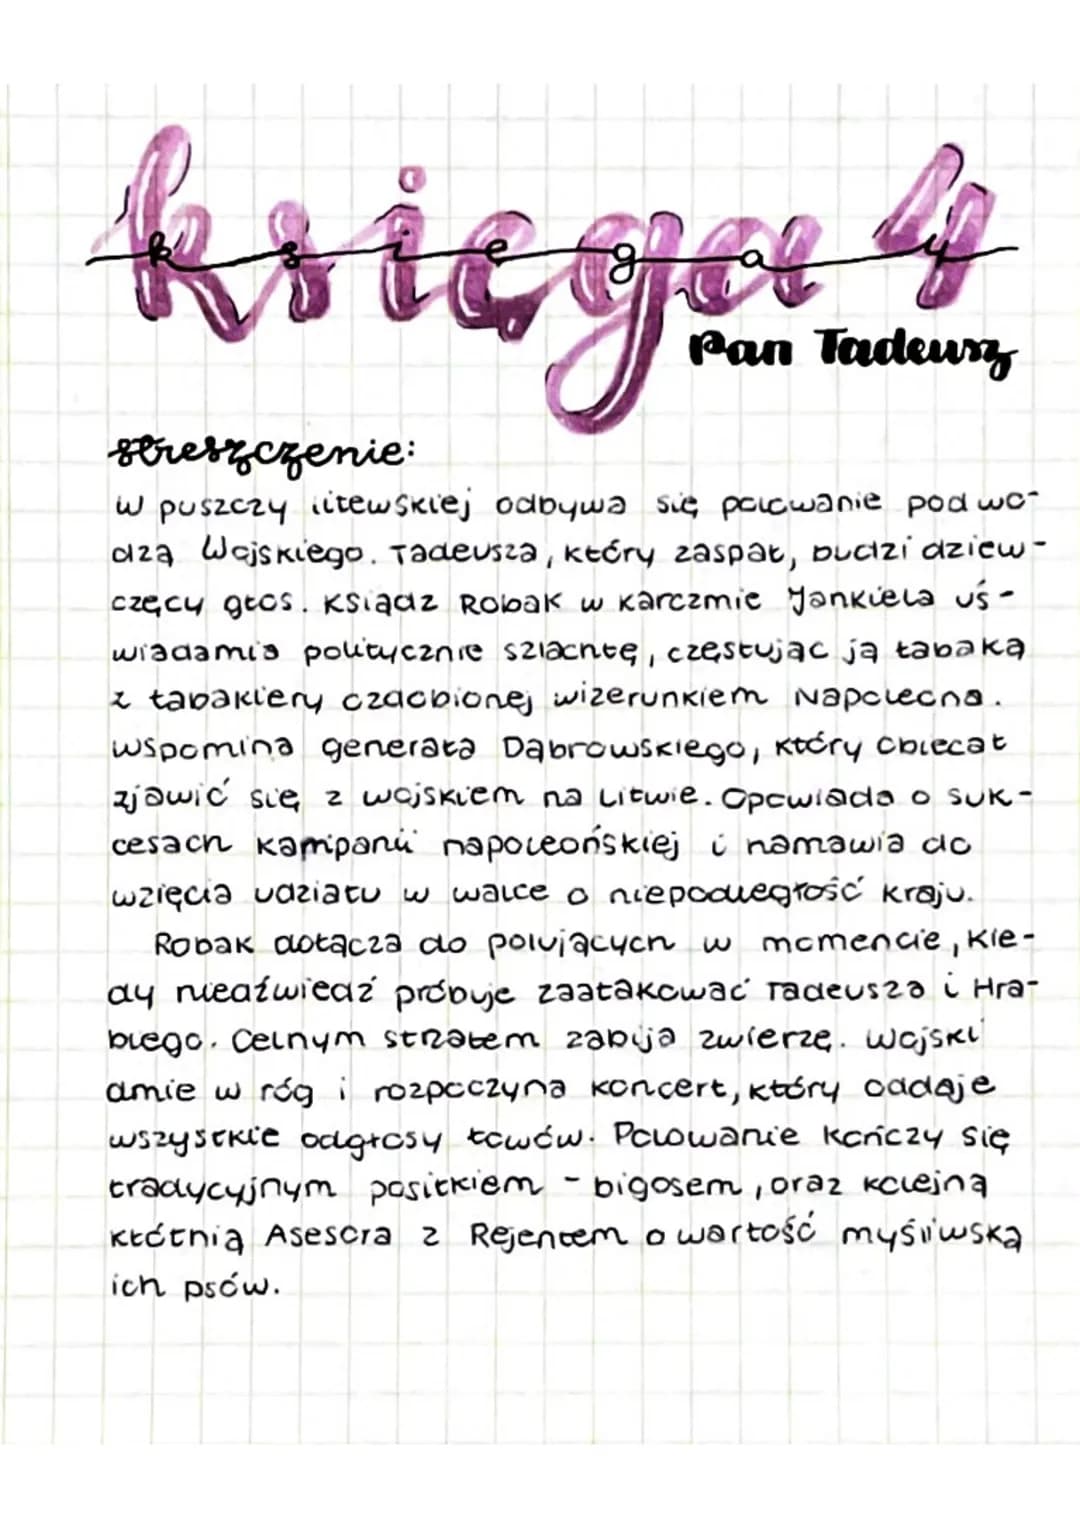 księga 4
księga 4
Pan Tadeusz
streszczenie:
W puszczy litewskiej odbywa się polowanie pod wo-
dzą Wojskiego. Tadeusza, który zaspał, budzi dziew-
częcy głos. Ksiądz Robak w karczmie Jankiela uś-
wiadamia politycznie szlachtę, częstując ją tabaką
z tabakiery ozdobionej wizerunkiem Napoleona.
Wspomina generała Dąbrowskiego, który obiecał
zjawić się z wojskiem na Litwie. Opowiada o suk-
cesach kampanii napoleońskiej i namawia do
wzięcia udziału w walce o niepodległość kraju.
Robak dołącza do polujących w momencie, kie-
dy niedźwiedź próbuje zaatakować Tadeusza i Hra-
biego. Celnym strzałem zabija zwierzę. Wojski
dmie w róg i rozpoczyna koncert, który oddaje
wszystkie odgłosy łowów. Polowanie kończy się
tradycyjnym posiłkiem - bigosem, oraz kolejną
kłótnią Asesora z Rejentem o wartość myśliwską
ich psów.